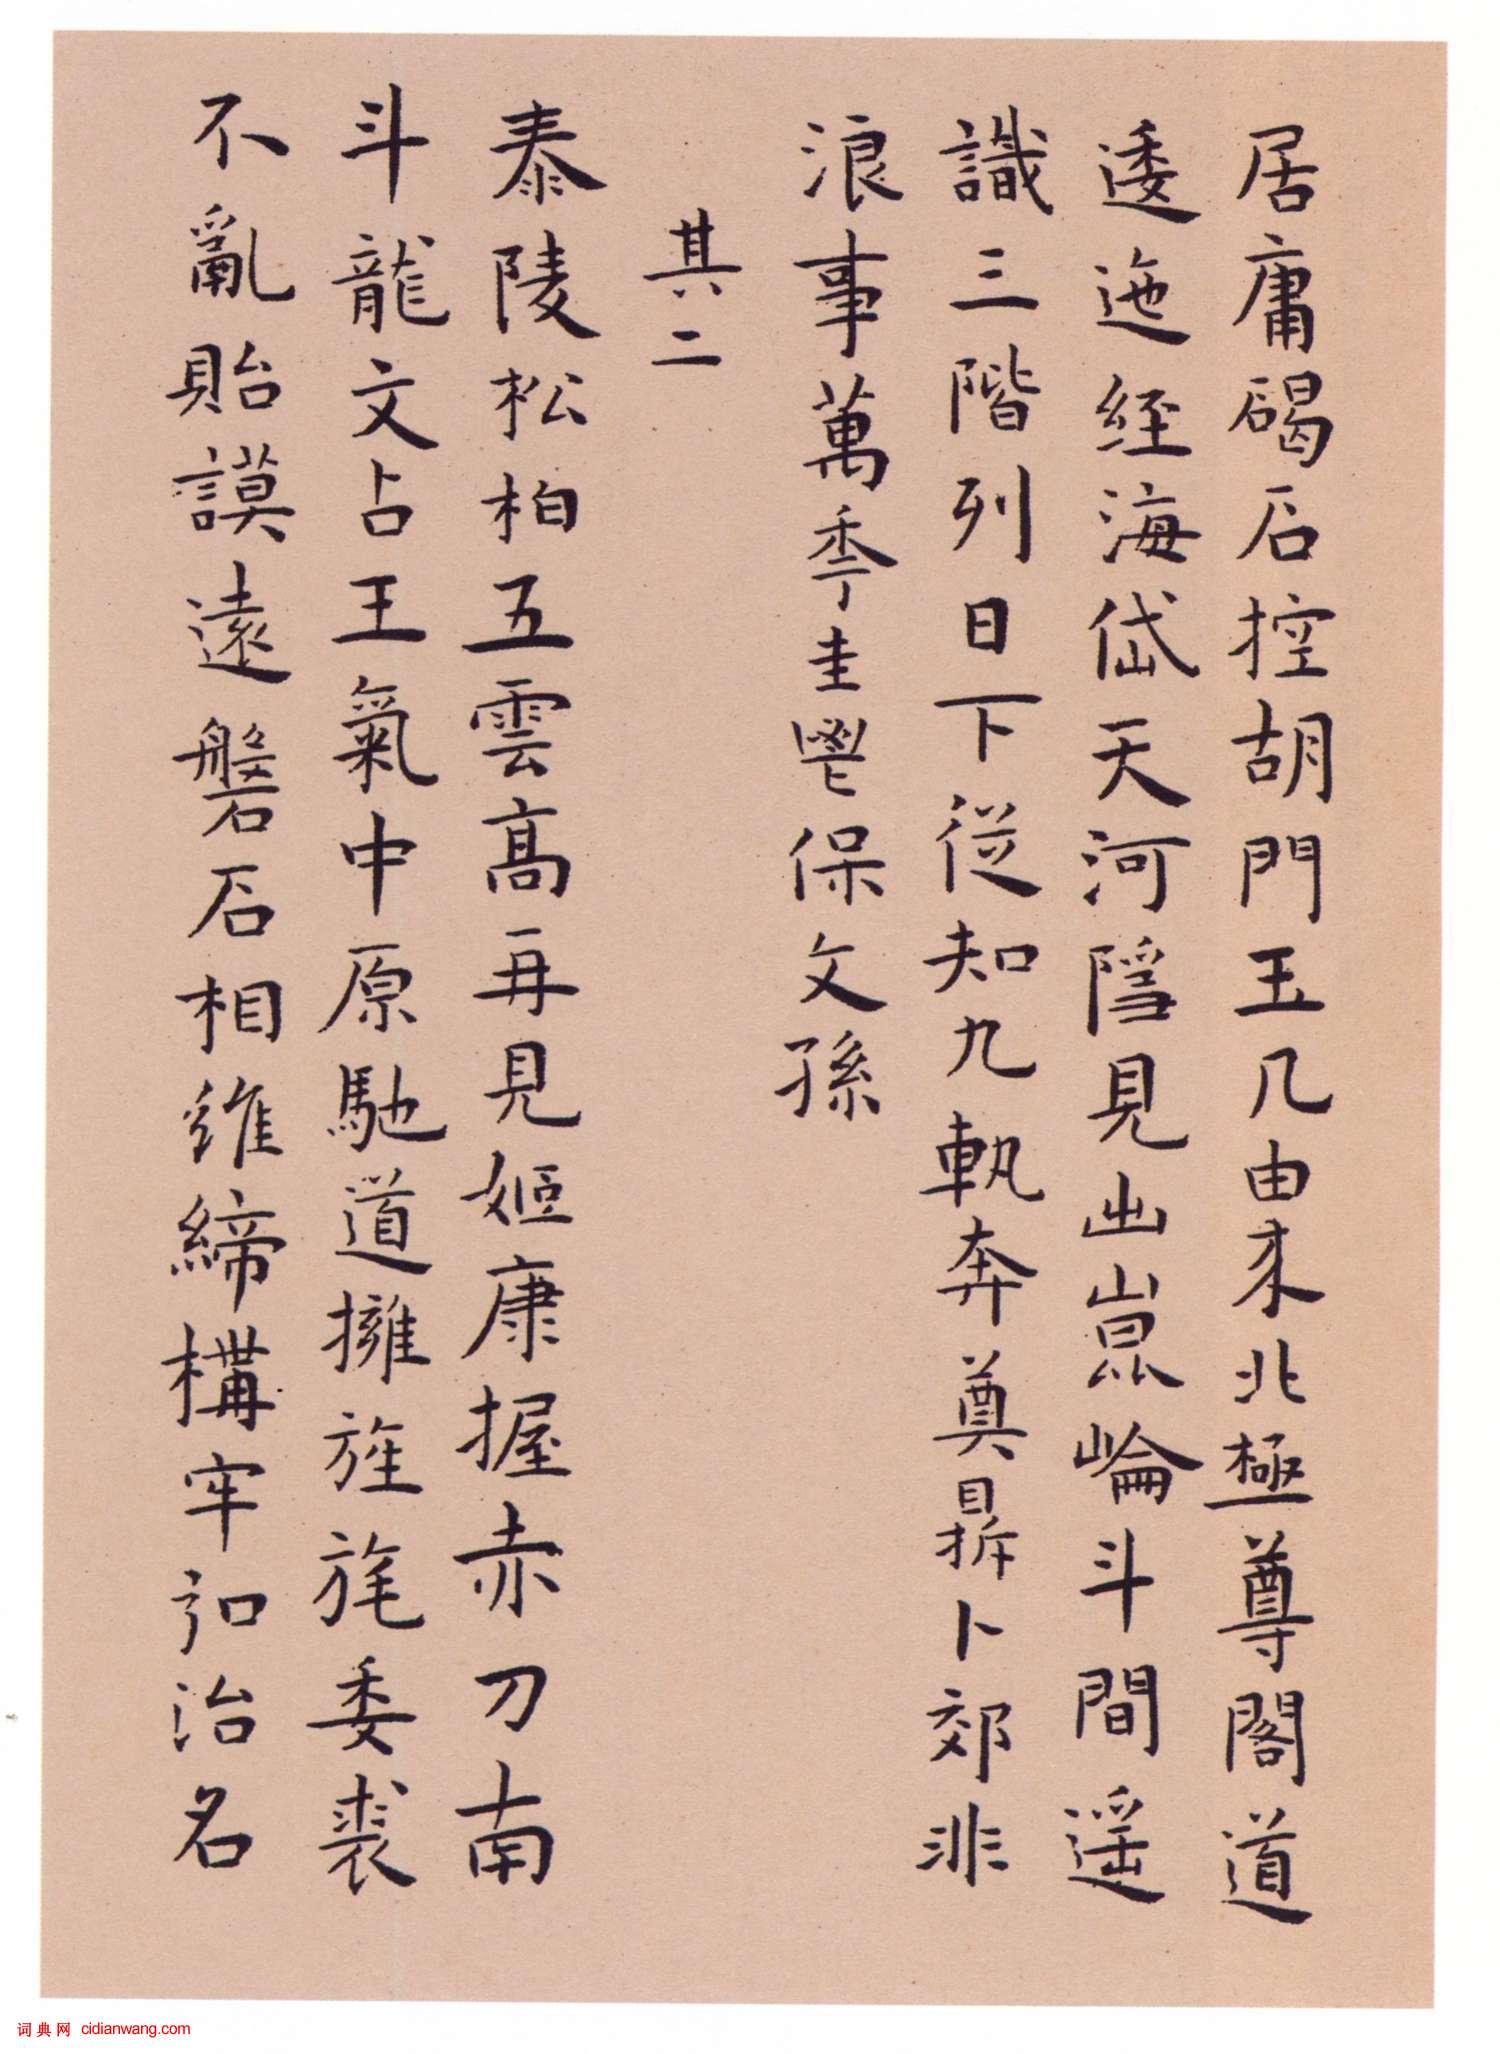 居庸碣石控胡門玉几由来北極尊閣道
逶迤經海岱天河隱見出崑崙斗間遥
識三階列日下從知九軌奔奠鼎卜郊非
浪事萬季圭鬯保文孫
其二
泰陵松柏五雲高再見姬康握赤刀南
斗龍文占王氣中原馳道擁旌旄委裘
不亂貽謨遠磐石相維締構牢弘治名
词典网 cidianwang.com